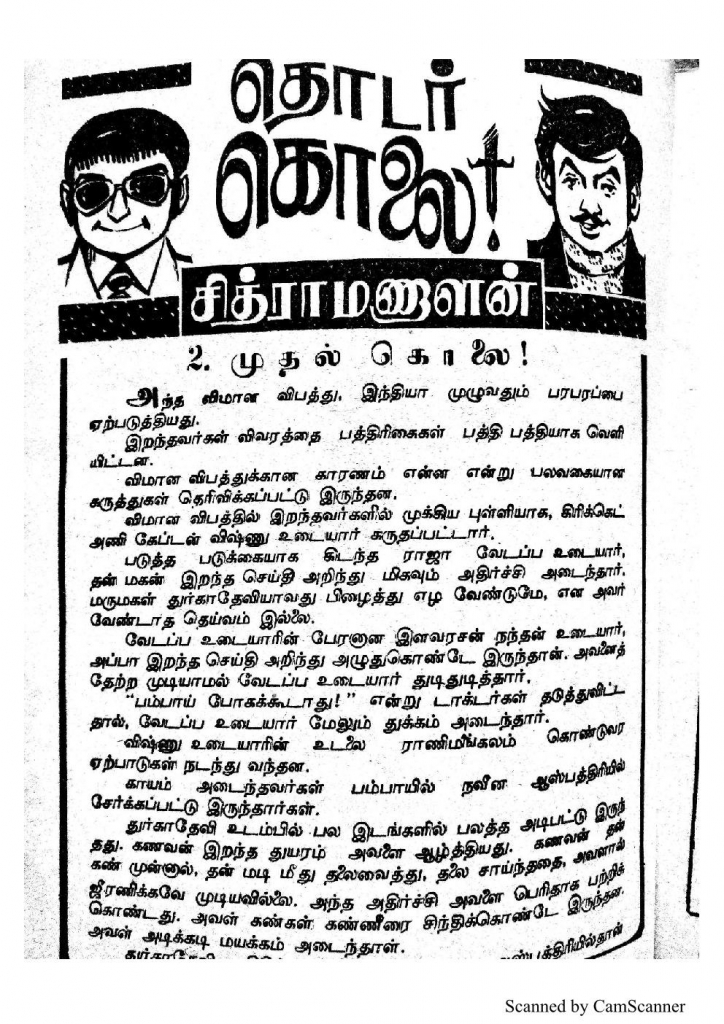 தொடர்
கொலை!
சித்ராமணாளன்
2. முதல் கொலை!
அந்த விமான விபத்து, இந்தியா முழுவதும் பரபரப்பை
ஏற்படுத்தியது.
இறந்தவர்கள் விவரத்தை பத்திரிகைகள் பத்தி பத்தியாக வெளி
யிட்டன.
விமான விபத்துக்கான காரணம் என்ன என்று பலவகையான
கருத்துகள் தெரிவிக்கப்பட்டு இருந்தன.
விமான விபத்தில் இறந்தவர்களில் முக்கிய புள்ளியாக, கிரிக்கெட்
அணி கேப்டன் விஷ்ணு உடையார் கருதப்பட்டார்.
படுத்த படுக்கையாக கிடந்த ராஜா வேடப்ப உடையார்,
தன் மகன் இறந்த செய்தி அறிந்து மிகவும் அதிர்ச்சி அடைந்தார்.
மருமகள் துர்காதேவியாவது பிழைத்து எழ வேண்டுமே, என அவர்
வேண்டாத தெய்வம் இல்லை.
வேடப்ப உடையாரின் பேரனான இளவரசன் நந்தன் உடையார்,
அப்பா இறந்த செய்தி அறிந்து அழுதுகொண்டே இருந்தான். அவனைத்
தேற்ற முடியாமல் வேடப்ப உடையார் துடிதுடித்தார்.
“பம்பாய் போகக்கூடாது!” என்று டாக்டர்கள் தடுத்துவிட்ட
தால், வேடப்ப உடையார் மேலும் துக்கம் அடைந்தார்.
விஷ்ணு உடையாரின் உடலை ராணிமங்கலம் கொண்டுவர
ஏற்பாடுகள் நடந்து வந்தன.
காயம் அடைந்தவர்கள் பம்பாயில் நவீன ஆஸ்பத்திரியில்
சேர்க்கப்பட்டு இருந்தார்கள்.
துர்காதேவி உடம்பில் பல இடங்களில் பலத்த அடிபட்டு இருந்
தது. கணவன் இறந்த துயரம் அவளை ஆழ்த்தியது. கணவன் தன்
கண் முன்னால், தன் மடி மீது தலைவைத்து, தலை சாய்ந்ததை, அவளால்
ஜீரணிக்கவே முடியவில்லை. அந்த அதிர்ச்சி அவளை பெரிதாக பற்றிக்
கொண்டது. அவள் கண்கள் கண்ணீரை சிந்திக்கொண்டே இருந்தன.
அவள் அடிக்கடி மயக்கம் அடைந்தாள்.
Scanned by CamScanner